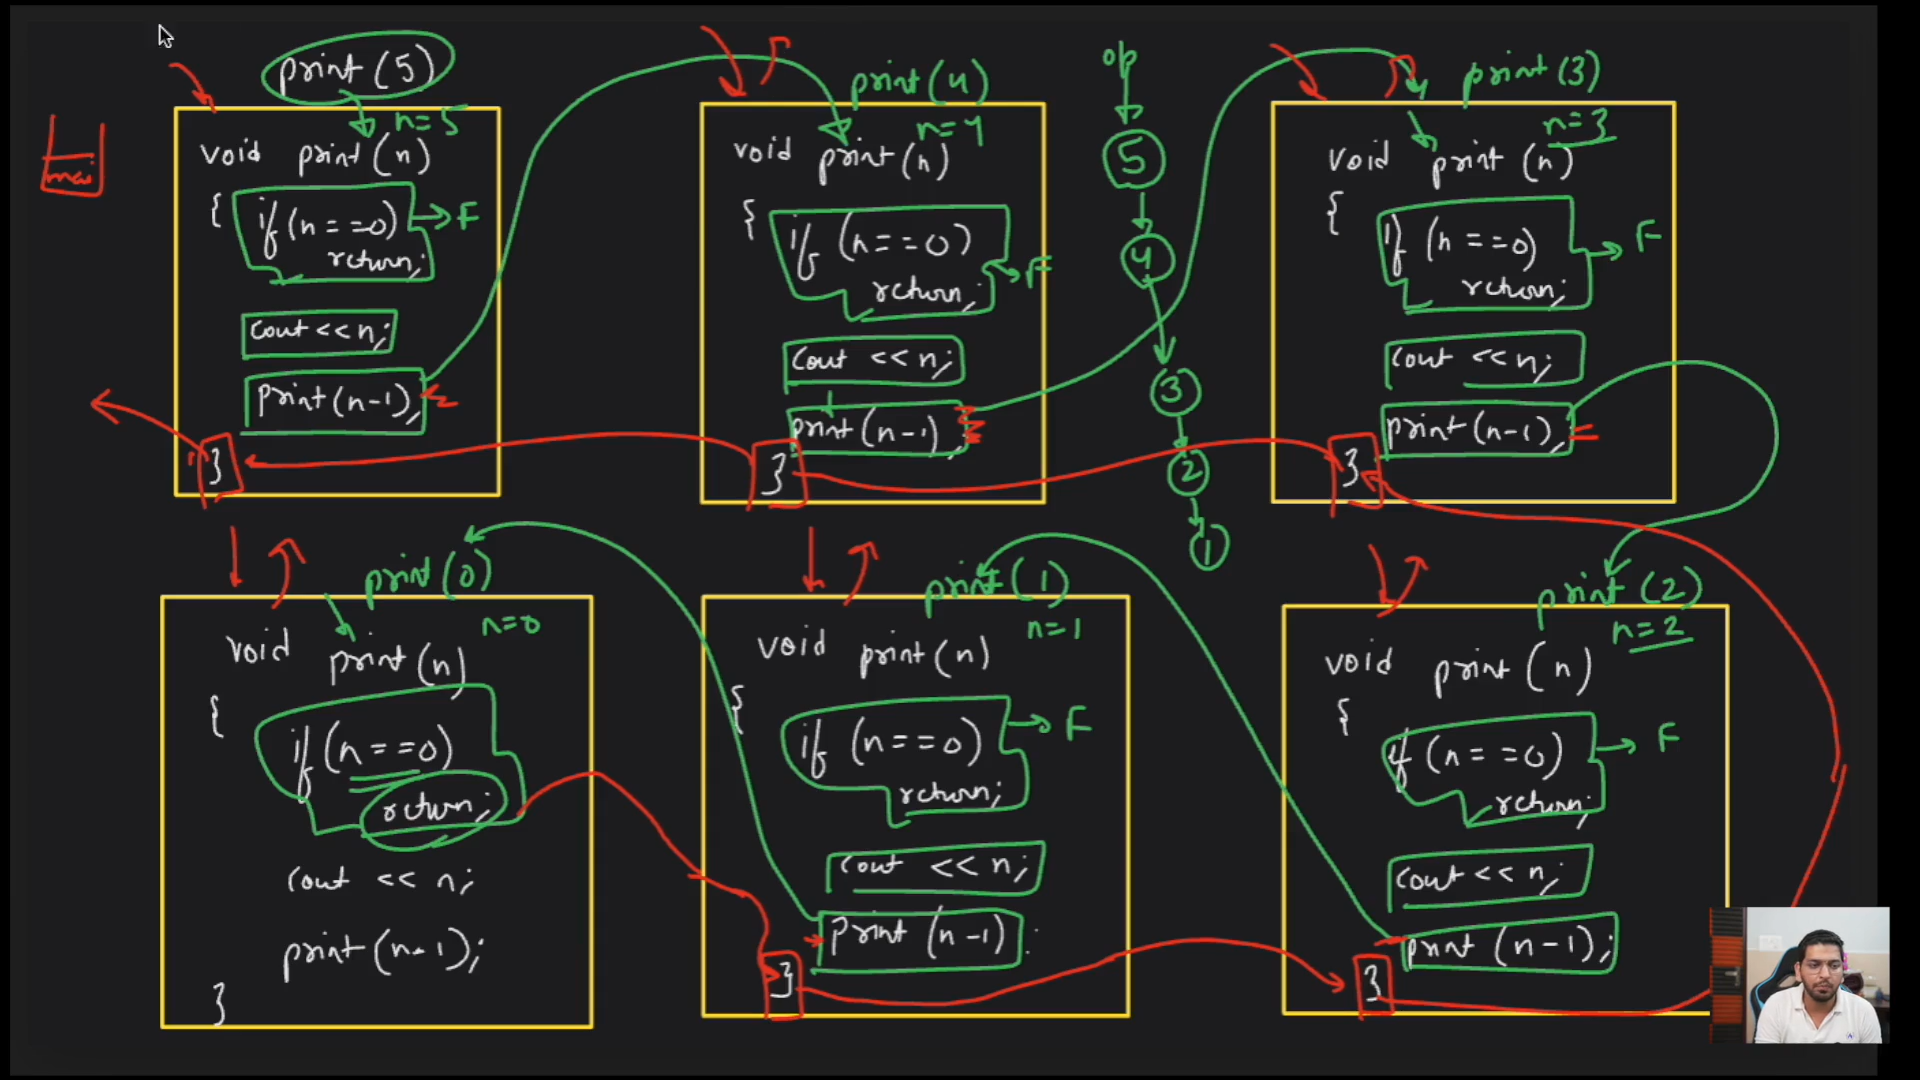 print (5)
n=5
void print (n)
{ if (n==0) → F
return;
cout << n;
print(n-1);
}
print (4)
n=4
void print (n)
{ if (n==0) → F
return;
cout << n;
print (n-1);
}
o/p
5
4
3
2
1
print (3)
n=3
void print (n)
{ if (n==0) → F
return;
cout << n;
print(n-1);
}
print (0)
n=0
void print (n)
{
if (n==0)
return;
cout << n;
print (n-1);
}
print (1)
n=1
void print (n)
{
if (n==0) → F
return;
cout << n;
print (n-1)
}
print (2)
n=2
void print (n)
{
if (n==0) → F
return;
cout << n;
print (n-1);
}